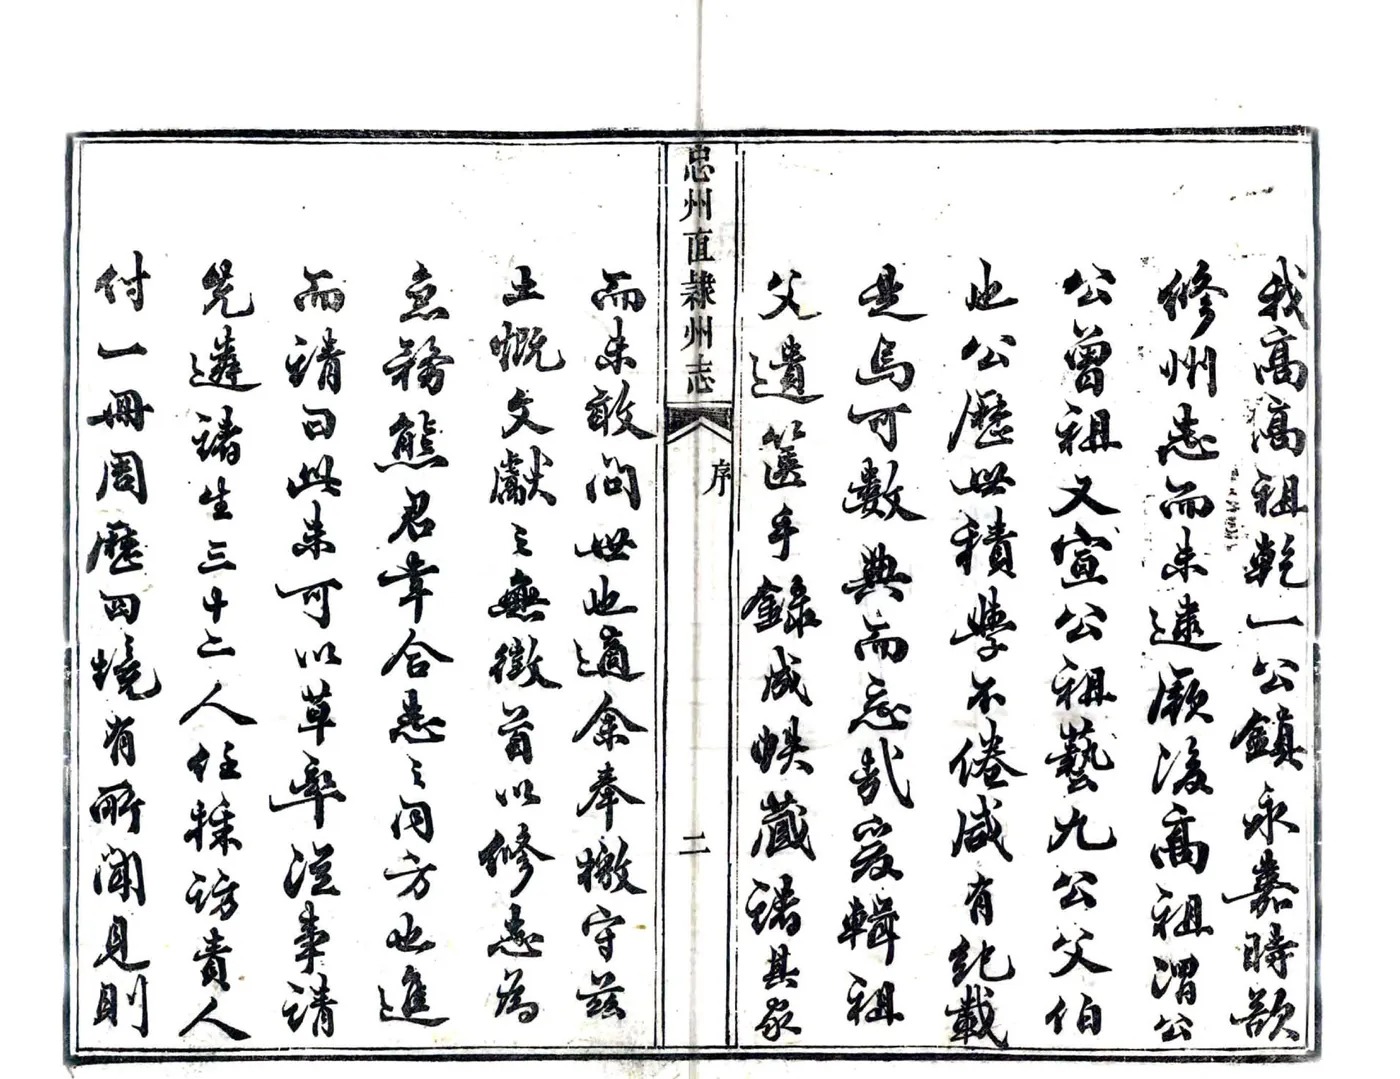 我高高祖乾一公鎮永嘉時欲
修州志而未遑厥後高祖渭公
公曾祖又宣公祖藝九公父伯
也公歷世積學不倦咸有紀載
是烏可數典而忘哉爰輯祖
父遺箧手錄成帙藏諸其家
忠州直隸州志
序
二
而未敢問世也適余奉檄守茲
土慨文獻之無徵首以修志為
急務熊君韋合志之同方也進
而請曰此未可以草率從事請
先遴諸生三十二人任採訪責人
付一冊周歷四境有所聞見則